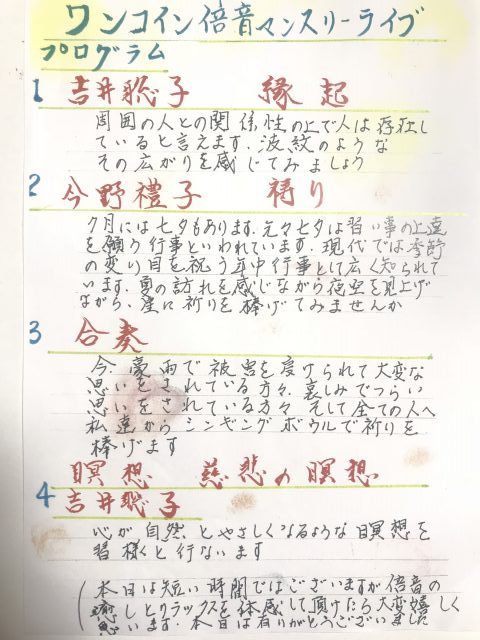 ワンコイン倍音マンスリーライブ
プログラム
1 吉井聡子 縁起
周囲の人との関係性の上で人は存在し
ていると言えます。波紋のような
その広がりを感じてみましょう
2 今野禮子 祷り
7月には七夕もあります。元々七夕は習い事の上達
を願う行事といわれています。現代では季節
の変り目を祝う年中行事として広く知られて
います。夏の訪れを感じながら夜空を見上げ
ながら、星に祈りを捧げてみませんか
3 合奏
今豪雨で被害を受けられて大変な
思いをされている方々、哀しみでつらい
思いをされている方々 そして全ての人へ
私達からシンギングボウルで祈りを
捧げます
瞑想 慈悲の瞑想
4 吉井聡子
心が自然とやさしくなるような瞑想を
皆様と行ないます
(本日は短い時間ではございますが倍音の
癒しとリラックスを体感して頂けたら大変嬉しく
思います。本日は有りがとうございました